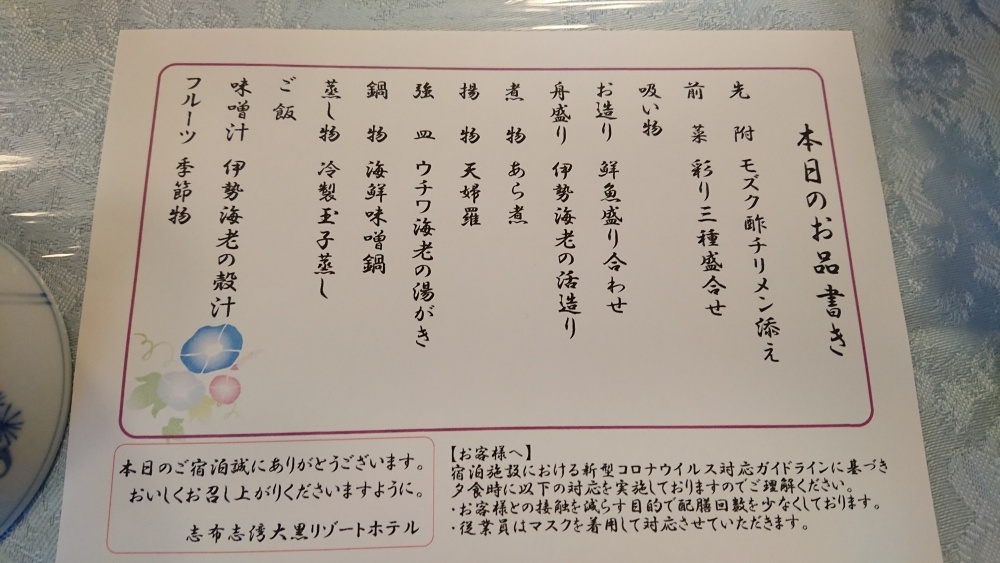 本日のお品書き
先附 モズク酢チリメン添え
前菜 彩り三種盛合せ
吸い物
お造り 鮮魚盛り合わせ
舟盛り 伊勢海老の活造り
煮物 あら煮
揚物 天婦羅
強皿 ウチワ海老の湯がき
鍋物 海鮮味噌鍋
蒸し物 冷製玉子蒸し
ご飯
味噌汁 伊勢海老の殻汁
フルーツ 季節物
本日のご宿泊誠にありがとうございます。
おいしくお召し上がりくださいますように。
志布志湾大黒リゾートホテル
【お客様へ】
宿泊施設における新型コロナウイルス対応ガイドラインに基づき
夕食時に以下の対応を実施しておりますのでご理解ください。
・お客様との接触を減らす目的で配膳回数を少なくしております。
・従業員はマスクを着用して対応させていただきます。